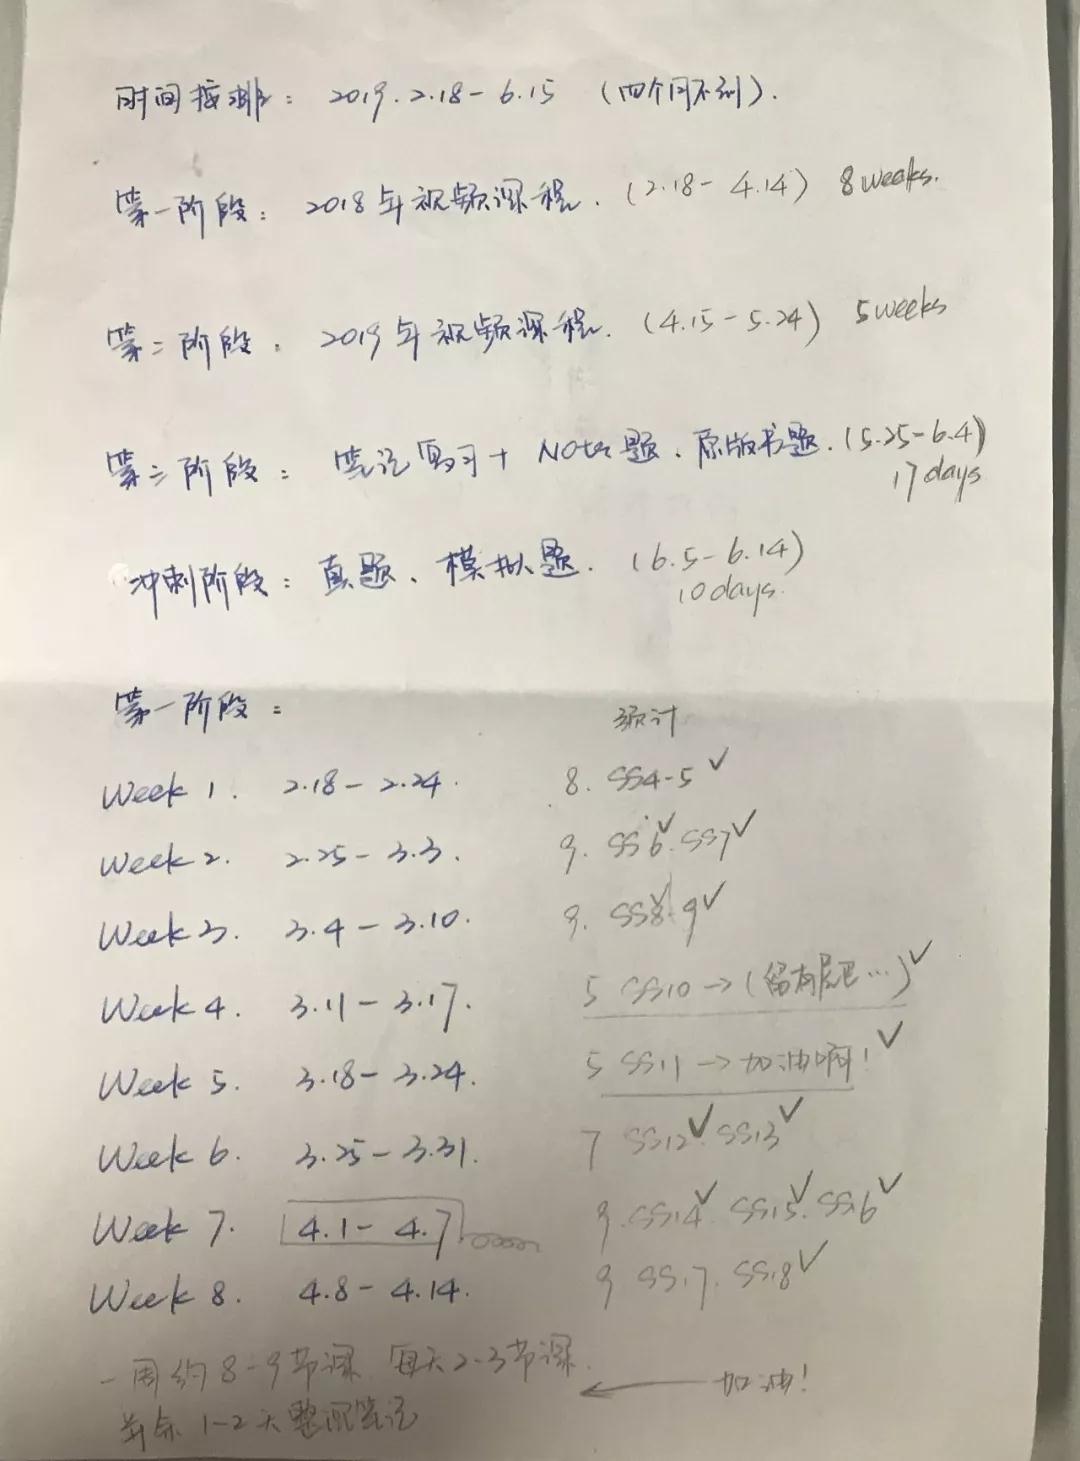 时间按排：2019.2.18－6.15（四个月不到）.
第一阶段：2018年视频课程.（2.18－4.14）8weeks.
第二阶段：2019年视频课程.（4.15－5.24）5weeks
第三阶段：笔记复习＋Note题、原版书题.（5.25－6.4）
17days
冲刺阶段：真题、模拟题.（6.5－6.14）
10days.
第一阶段：预计
Week 1. 2.18－2.24. 8. SS4-5 ✓
Week 2. 2.25－3.3. 9. SS6✓. SS7✓
Week 3. 3.4－3.10. 9. SS8✓ 9✓
Week 4. 3.11－3.17. 5 SS10→（留有尾巴…）✓
Week 5. 3.18－3.24. 5 SS11→加油啊！✓
Week 6. 3.25－3.31. 7 SS12✓. SS13✓
Week 7. 4.1－4.7 9. SS14✓. SS15✓. SS16✓
Week 8. 4.8－4.14. 9 SS17. SS18✓
一周约8-9节课, 每天2-3节课. ← 加油！
并余1-2天整理笔记